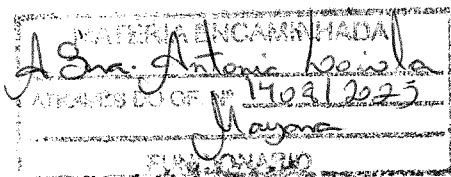 MATÉRIA ENCAMINHADA
A Sra. Antonia
ATRAVÉS DO OF. Nº 1409/2025
Mayara
FUNCIONÁRIO